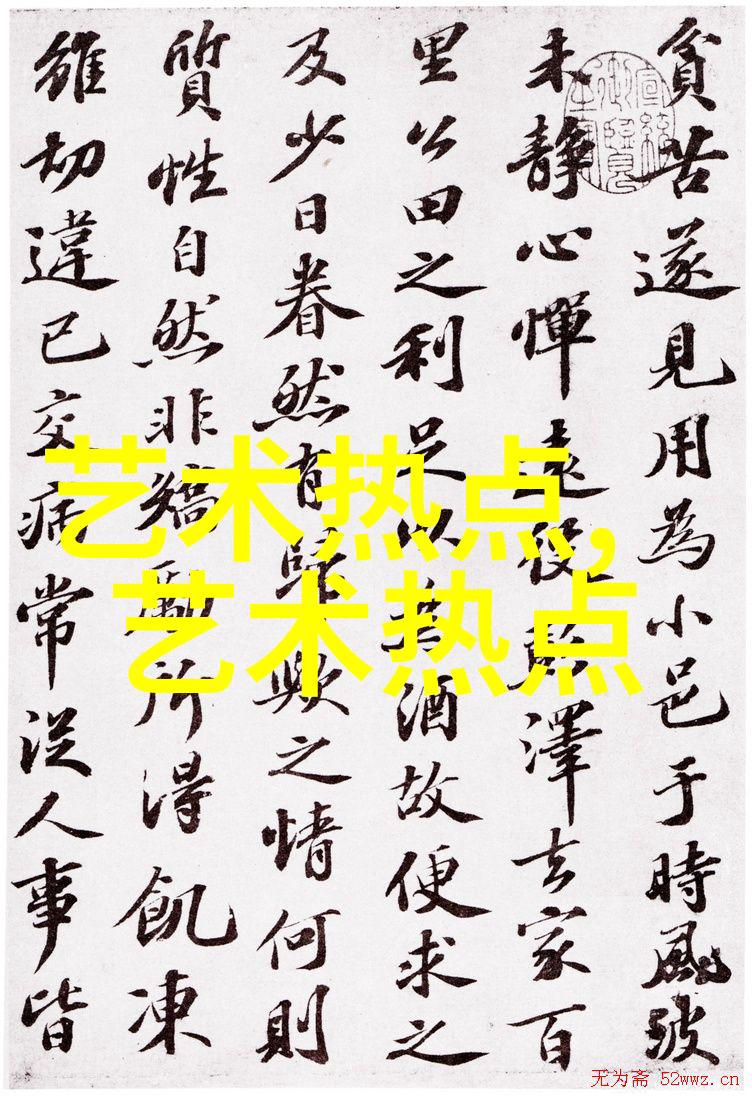 貧苦遂見用為小邑于時風波
未靜心憚遠役彭澤去家百
里公田之利足以為酒故便求之
及少日眷然有歸歟之情何則
質性自然非矯勵所得飢凍
雖切違已交病常從人事皆
宣統
御覽
艺术热点,
艺术热点
无为斋 52wwz.cn